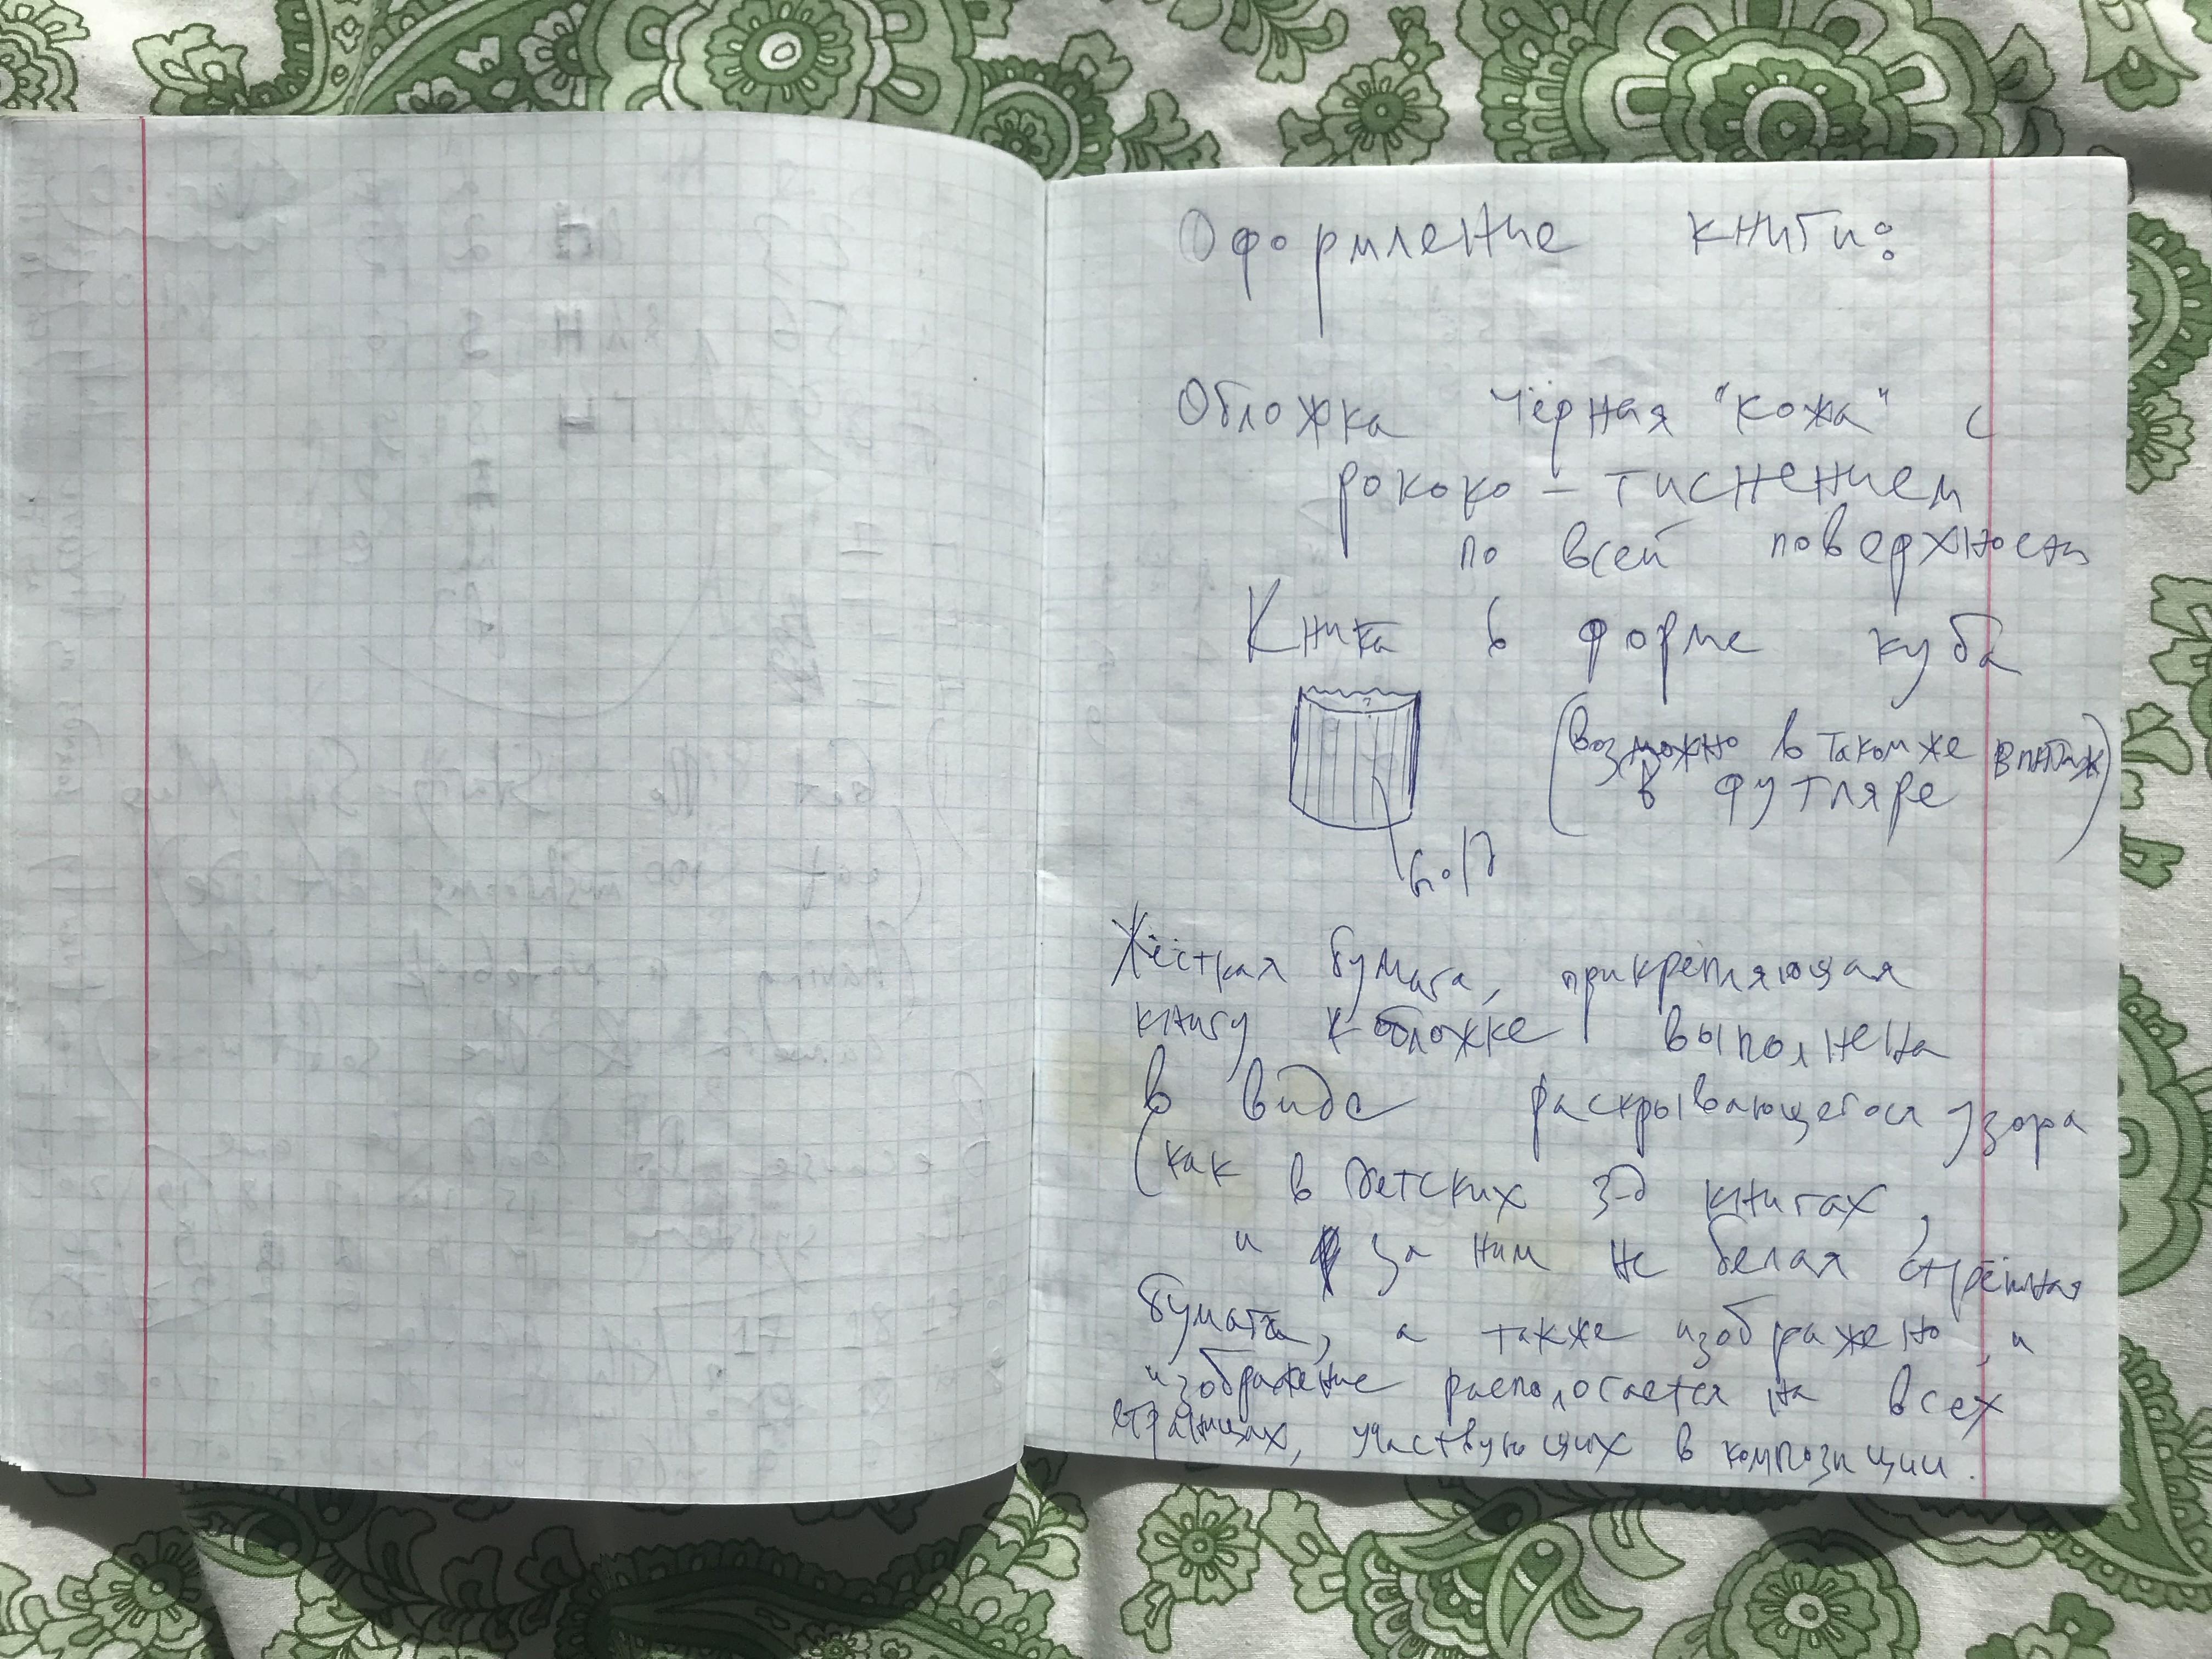 Оформление книги:
Обложка чёрная "кожа" с
рококо-тиснением
по всей поверхности
Книга в форме куба
(Возможно в таком же
в футляре)
Жёсткая бумага, прикрепляющая
книгу к обложке выполнена
в виде раскрывающегося узора
(как в детских 3D книгах
и за ним не белая
бумага, а также изображено, и
изображение располагается на всех
страницах, участвующих в композиции.